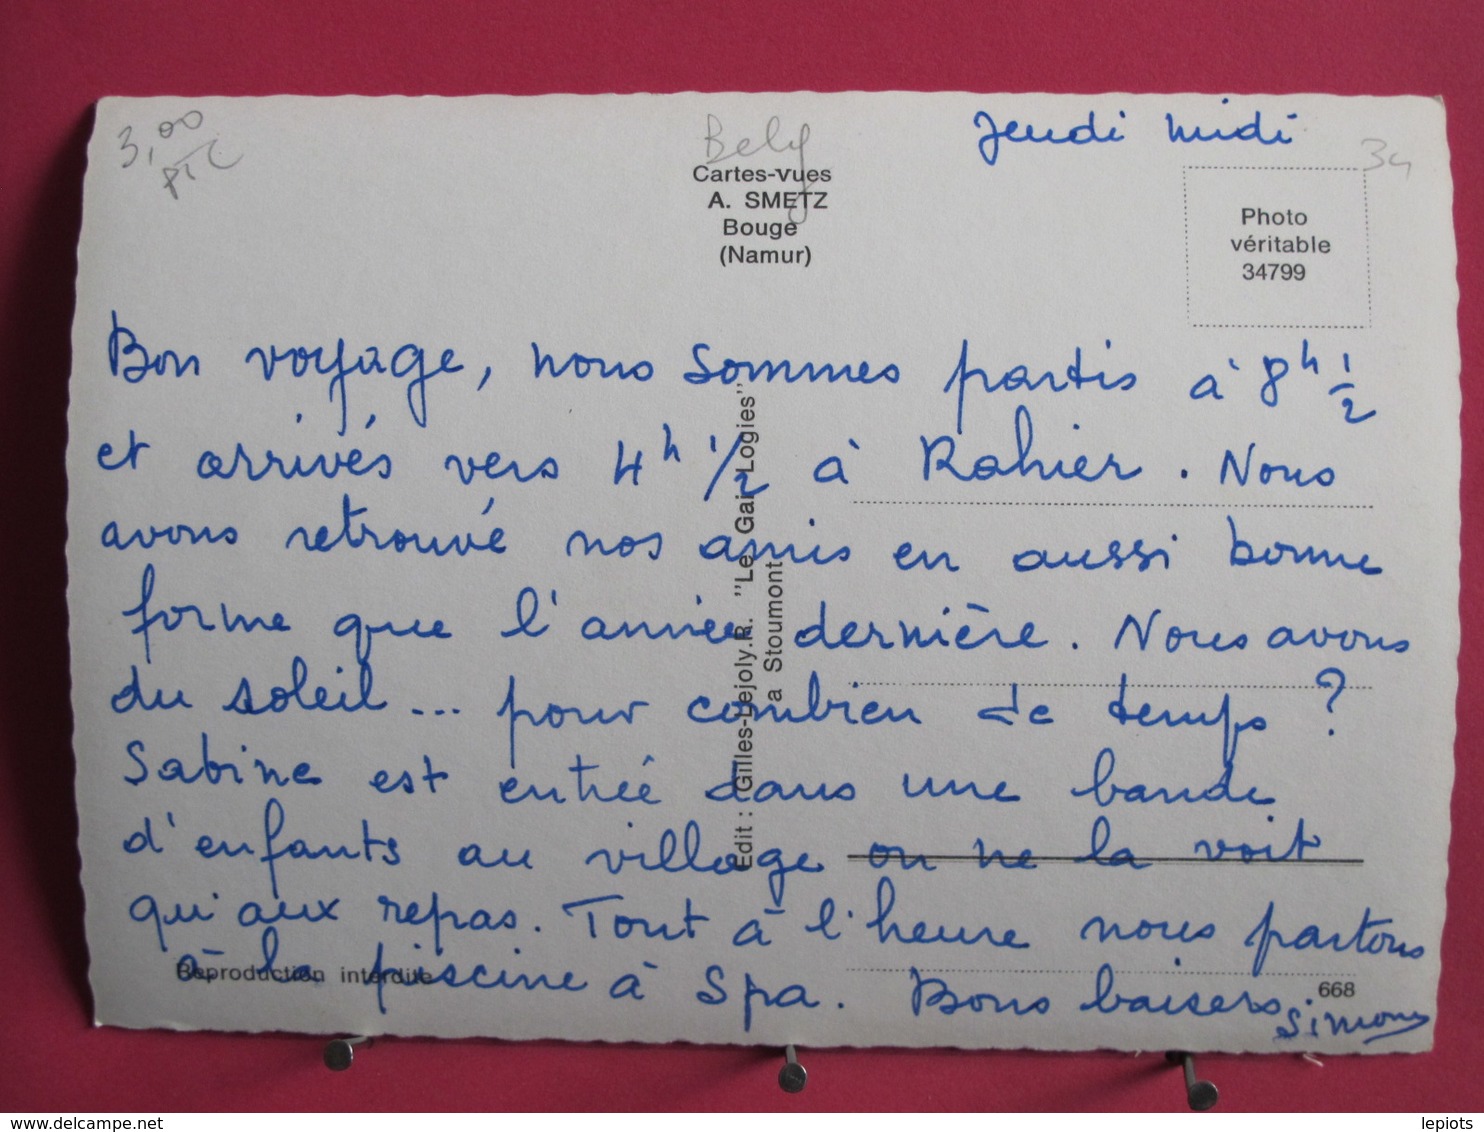 3,00
Belg
Jeudi midi
34
Cartes-vues
A. SMETZ
Bouge
(Namur)
Photo
véritable
34799
Bon voyage, nous sommes partis à 8h 1/2
et arrivés vers 4h 1/2 à Rahier. Nous
avons retrouvé nos amis en aussi bonne
forme que l'année dernière. Nous avons
du soleil... pour combien de temps ?
Sabine est entrée dans une bande
d'enfants au village on ne la voit
qu'aux repas. Tout à l'heure nous partons
à la piscine à Spa. Bons baisers
Simone
Edit : Gilles-Lejoly.R. "Le Gai Logies"
a Stoumont
Reproduction interdite
668
delcampe.net
lepiots